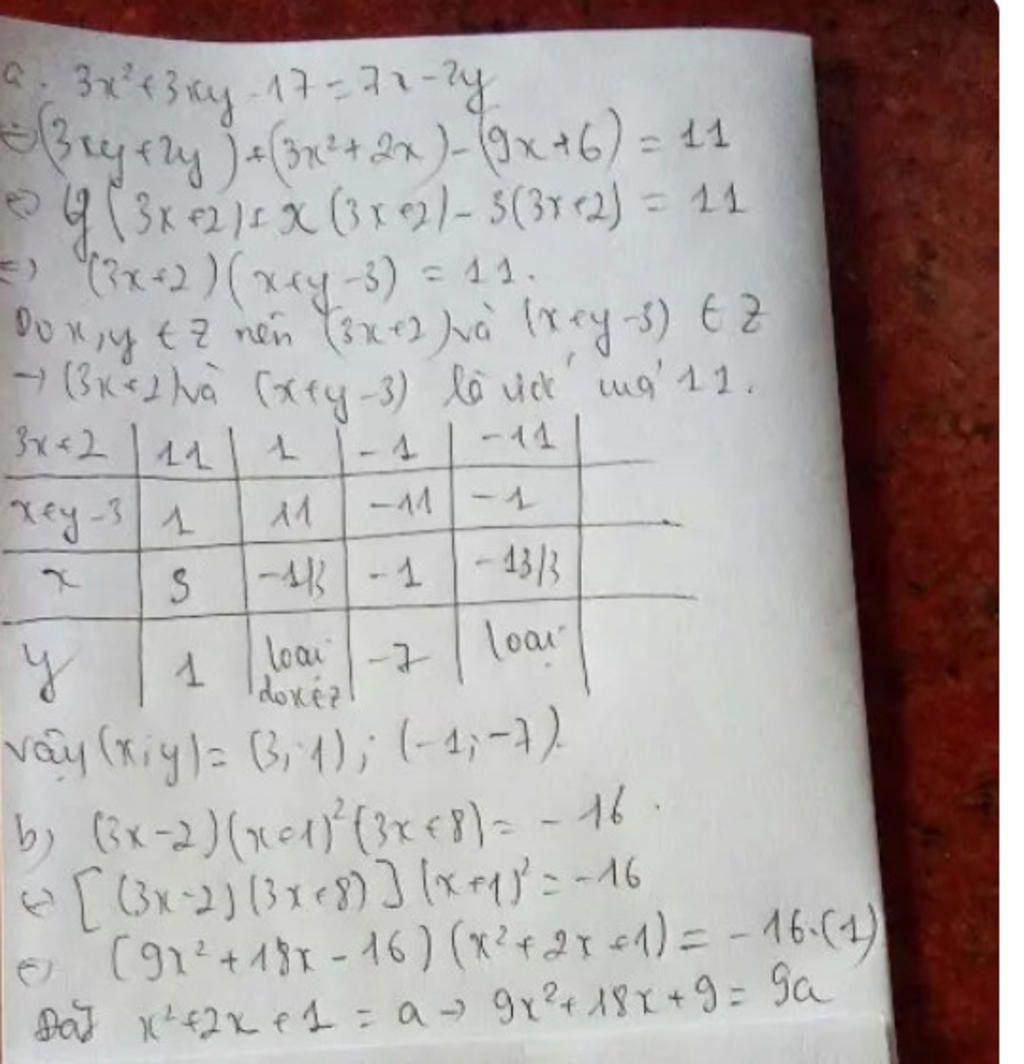 a. 3x²+3xy-17=7x-2y
⇔(3xy+2y)+(3x²+2x)-(9x+6)=11
⇔ y(3x+2)+x(3x+2)-3(3x+2)=11
⇔ (3x+2)(x+y-3)=11.
Do x,y ∈ Z nên (3x+2)và (x+y-3) ∈ Z
→ (3x+2)và (x+y-3) là ước của 11.
3x+2 | 11 | 1 | -1 | -11
x+y-3 | 1 | 11 | -11 | -1
x | 3 | -1/3 | -1 | -13/3
y | 1 | loại do x∉Z | -7 | loại
vậy (x;y)= (3;1); (-1;-7).
b) (3x-2)(x+1)²(3x+8)= -16.
⇔ [(3x-2)(3x+8)](x+1)²=-16
⇔ (9x²+18x-16)(x²+2x+1)= -16.(1)
Đặt x²+2x+1=a → 9x²+18x+9=9a